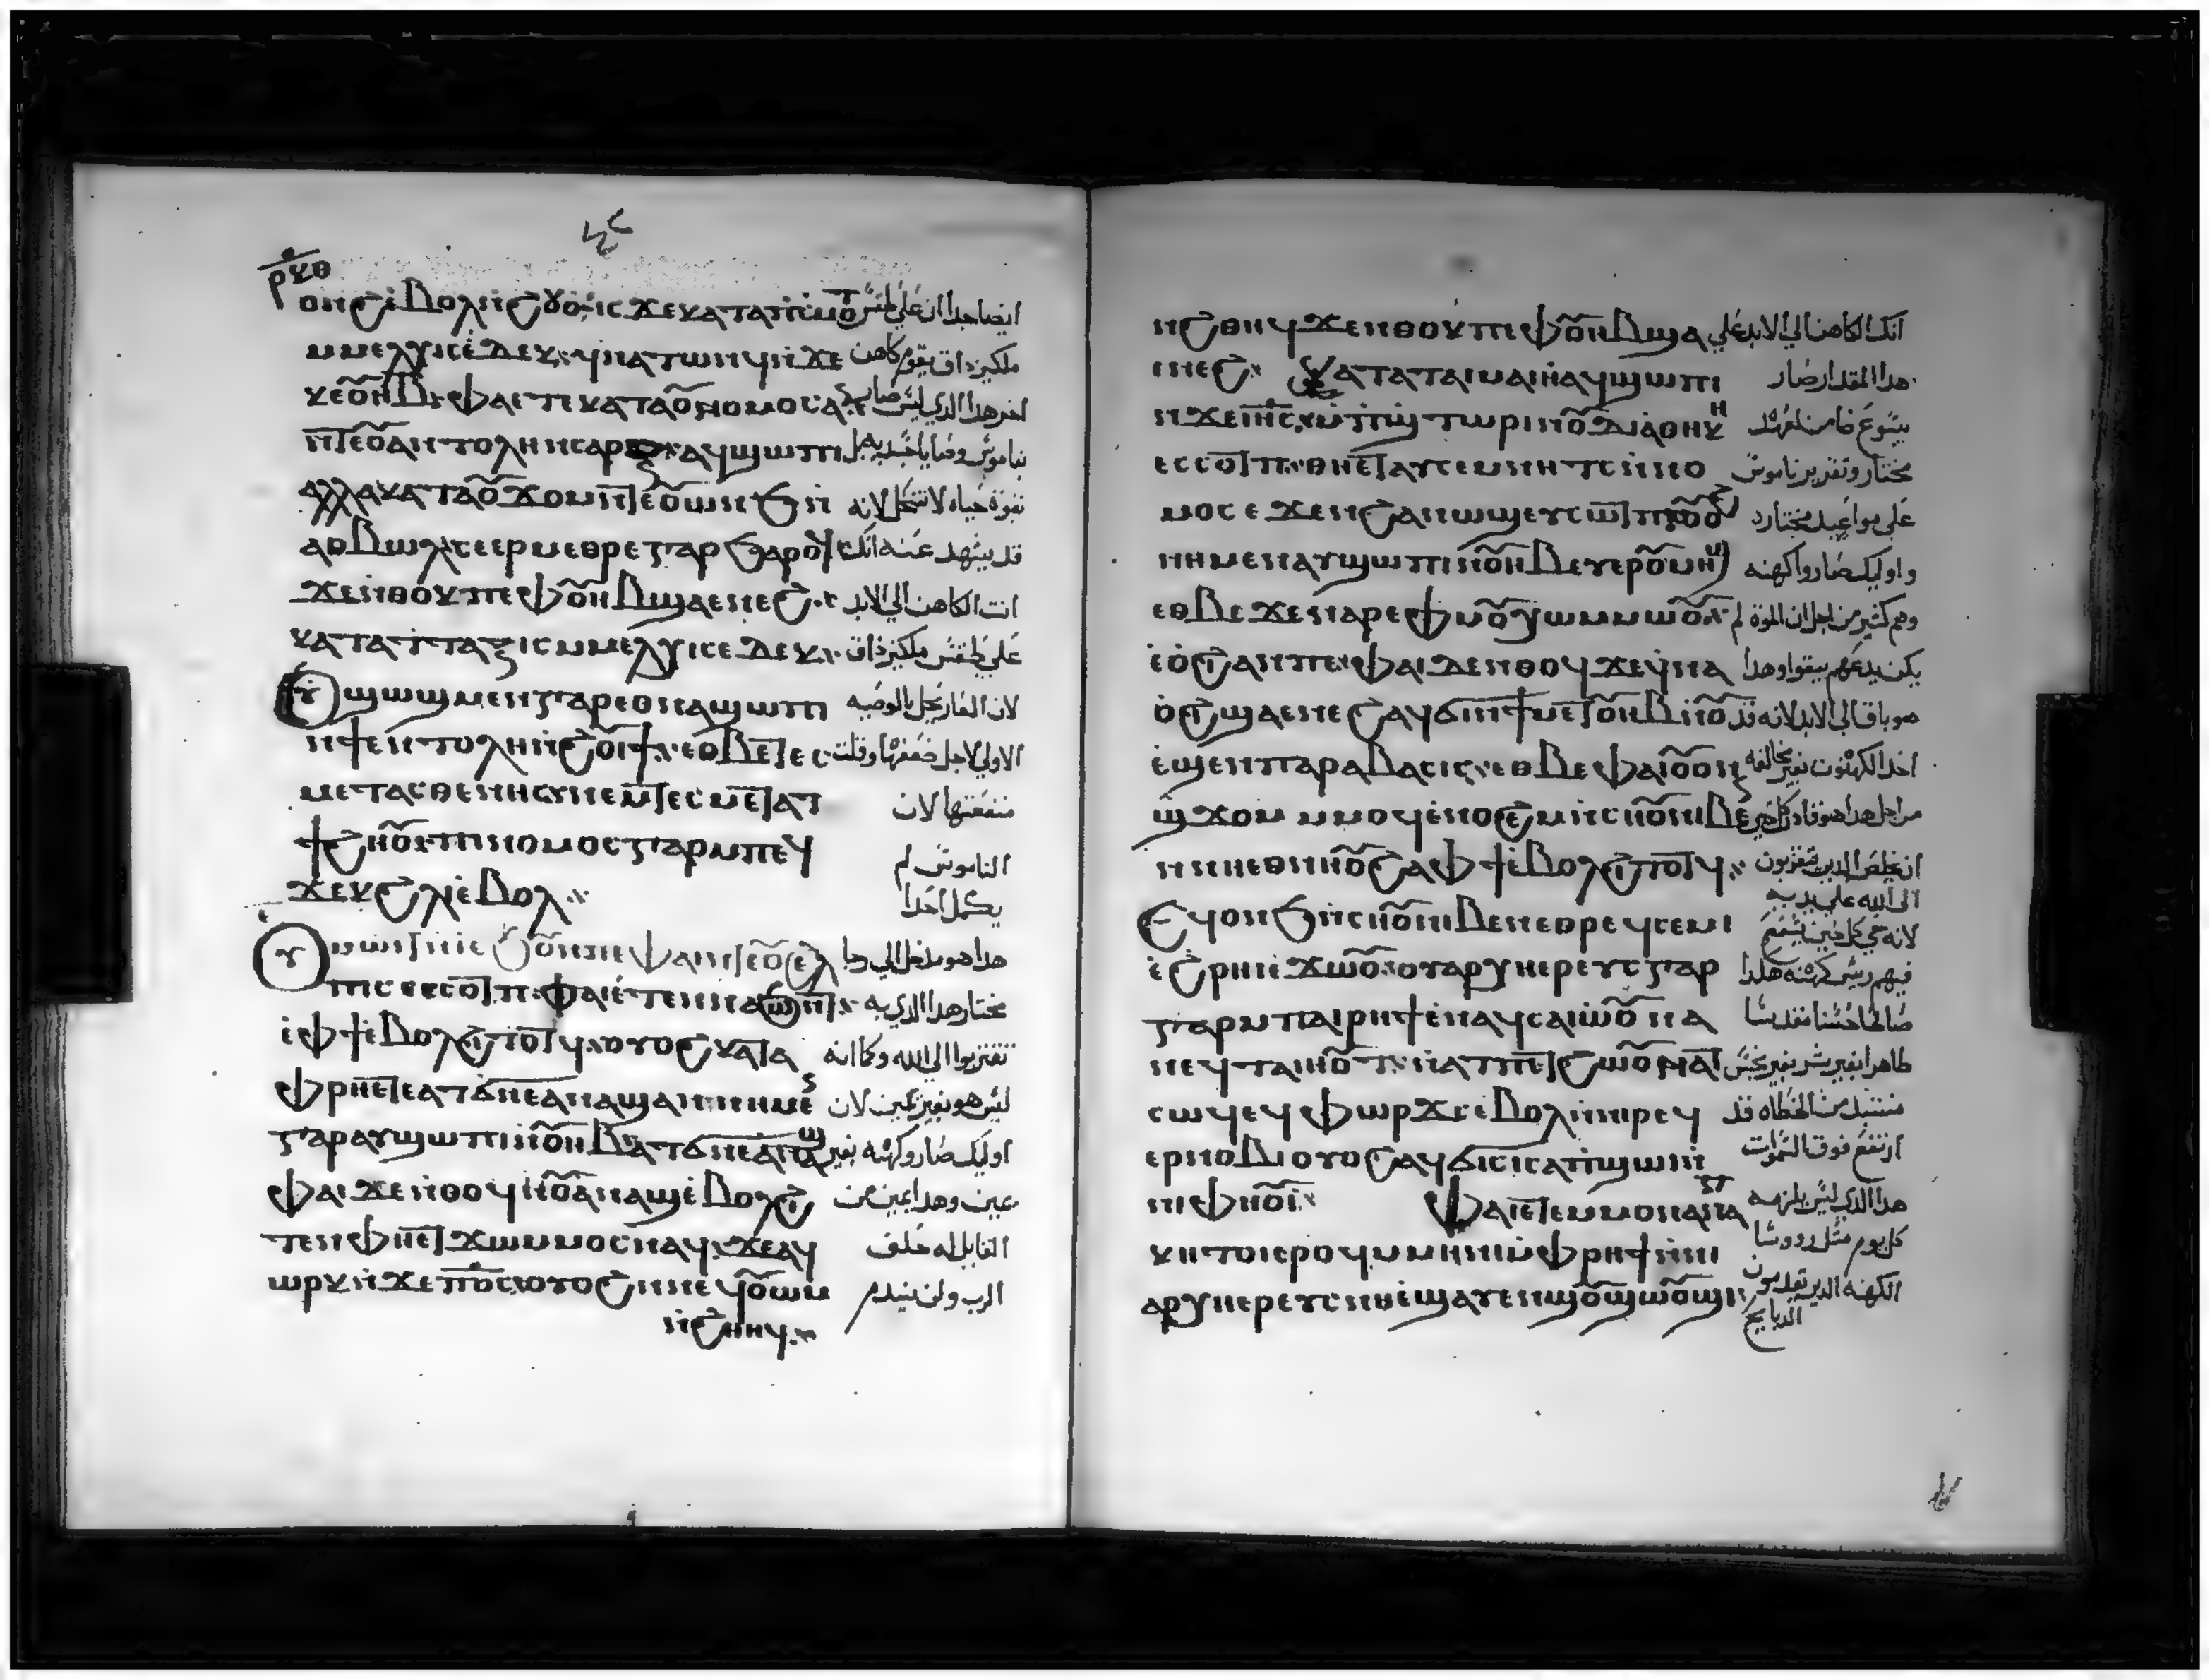 ⲣⲕⲑ
ⲟⲛϩⲓⲃⲟⲗⲛϩⲟⲩⲟ ⲓⲥϫⲉⲕⲁⲧⲁⲡⲥⲙⲟⲧ ايضا جدا ان على طقس
ⲙⲙⲉⲗⲭⲓⲥⲉⲇⲉⲕ ϥⲛⲁⲧⲱⲛϥⲛϫⲉ ملكيزداق يقوم كاهن
ⲕⲉⲟⲩⲏⲃ ⲫⲁⲓⲉⲧⲉⲕⲁⲧⲁⲟⲩⲛⲟⲙⲟⲥⲁⲛ اخر هذا الذي ليس صار
ⲛⲧⲉⲟⲩⲁⲛⲧⲟⲗⲏⲛⲥⲁⲣⲝ ⲁϥϣⲱⲡⲓ بناموس وصايا جسديه بل
ⲁⲗⲗⲁⲕⲁⲧⲁⲟⲩϫⲟⲙⲛⲧⲉⲟⲩⲱⲛϧⲛ بقوة حياه لا تنحل لانه
ⲁⲧⲃⲱⲗ ⲥⲉⲉⲣⲙⲉⲑⲣⲉⲅⲁⲣϧⲁⲣⲟϥ قد يشهد عنه انك
ϫⲉⲛⲑⲟⲕⲡⲉⲫⲟⲩⲏⲃϣⲁⲉⲛⲉϩ انت الكاهن الى الابد
ⲕⲁⲧⲁⲧⲧⲁⲝⲓⲥⲙⲙⲉⲗⲭⲓⲥⲉⲇⲉⲕ على طقس ملكيزداق
ⲟⲩϣⲱϣⲙⲉⲛⲅⲁⲣⲉⲑⲛⲁϣⲱⲡⲓ بالوصيه
ⲛϯⲉⲛⲧⲟⲗⲏⲛϩⲟⲩⲓϯ ⲉⲑⲃⲉⲧⲉⲥ الاولى لاجل ضعفها وقلت
ⲙⲉⲧⲁⲥⲑⲉⲛⲏⲥ ⲛⲉⲙⲧⲉⲥⲙⲉⲧⲁⲧ منفعتها لان
ϯϩⲏⲟⲩ ⲡⲓⲛⲟⲙⲟⲥⲅⲁⲣⲙⲡⲉϥ الناموس لم
ϫⲉⲕϩⲗⲓⲉⲃⲟⲗ يكمل احدا
ⲟⲩⲙⲱⲓⲧⲛⲉϧⲟⲩⲛⲡⲉⲫⲁⲓⲛⲧⲉⲟⲩϩⲉⲗ هذا هو مدخل الى رجا
ⲡⲓⲥⲉⲥⲥⲟⲧⲡ ⲫⲁⲓⲉⲧⲉⲛⲛⲁϧⲱⲛⲧ مختار هذا الذي به
ⲉⲫϯⲉⲃⲟⲗϩⲓⲧⲟⲧϥ ⲟⲩⲟϩⲕⲁⲧⲁ نقتربوا الى الله وكما انه
ⲫⲣⲏⲧⲉⲁⲧϭⲛⲉⲁⲛⲁϣⲁⲛ ⲛⲏⲙⲉⲛ ليس هو بغير يمين لان
ⲅⲁⲣⲁⲩϣⲱⲡⲓⲛⲟⲩⲏⲃⲁⲧϭⲛⲉⲁⲛⲁϣ اوليك صاروا كهنه بغير
ⲫⲁⲓϫⲉⲛⲑⲟϥⲛⲟⲩⲁⲛⲁϣⲉⲃⲟⲗϩⲓ يمين وهذا يمين من
ⲧⲉⲛⲫⲏⲉⲧϫⲱⲙⲙⲟⲥⲛⲁϥ ϫⲉⲁϥ القايل له حلف
ⲱⲣⲕⲛϫⲉⲡϭⲥ ⲟⲩⲟϩⲛⲛⲉϥⲟⲩⲱⲙ الرب ولن يندم
ⲛϩⲑⲏϥ
ⲛϩⲑⲏϥϫⲉⲛⲑⲟⲕⲡⲉⲫⲟⲩⲏⲃϣⲁ انك الكاهن الى الابد على
ⲉⲛⲉϩ ⲕⲁⲧⲁⲧⲁⲓⲙⲁⲓⲏⲁϥϣⲱⲡⲓ هذا المقدار صار
ⲛϫⲉⲓⲏⲥ ⲙⲡϣⲧⲱⲣⲓⲛⲟⲩⲇⲓⲁⲑⲏⲕⲏ يسوع ضامن لعهد
ⲉⲥⲥⲟⲧⲡ ⲑⲏⲉⲧⲁⲩⲥⲉⲙⲛⲏⲧⲥⲛⲛⲟ مختار وتقرير ناموس
ⲙⲟⲥ ⲉϫⲉⲛϩⲁⲛⲱϣⲉⲩⲥⲱⲧⲡ ⲟⲩⲟϩ على مواعيد مختاره
ⲛⲏⲙⲉⲛⲁⲩϣⲱⲡⲓⲛⲟⲩⲏⲃⲉⲩⲉⲣⲟⲩⲙⲏϣ واوليك صاروا كهنه
ⲉⲑⲃⲉϫⲉⲛⲁⲣⲉⲫⲙⲟⲩⲭⲱⲙⲙⲱⲟⲩ وهم كثير من اجل ان الموة لم
ⲉⲟϩⲓⲁⲛⲡⲉ ⲫⲁⲓⲇⲉⲛⲑⲟϥϫⲉϥⲛⲁ يكن يدعهم يبقوا وهذا
ⲟϩⲓϣⲁⲉⲛⲉϩⲁϥϭⲓⲛϯⲙⲉⲧⲟⲩⲏⲃⲛⲟⲩ هو باق الى الابد لانه قد
ⲉϣⲉⲛⲡⲁⲣⲁⲃⲁⲥⲓⲥ ⲉⲑⲃⲉⲫⲁⲓⲟⲩⲟⲛ اخذ الكهنوت بغير مخالفه
ϣϫⲟⲙ ⲙⲙⲟϥⲉⲛⲟϩⲉⲙⲛⲥⲏⲟⲩⲛⲓⲃⲉⲛ من اجل هذا هو قادر كل حين
ⲛⲛⲏⲉⲑⲛⲏⲟⲩϩⲁⲫϯⲉⲃⲟⲗϩⲓⲧⲟⲧϥ ان يخلص الذين يتقربون
الى الله على يديه
ⲉϥⲟⲛϧⲛⲥⲏⲟⲩⲛⲓⲃⲉⲛⲉⲑⲣⲉϥⲥⲉⲙⲓ لانه حي كل حين يشفع
ⲉϩⲣⲏⲓⲉϫⲱⲟⲩ ⲟⲩⲁⲣⲭⲏⲉⲣⲉⲩⲥⲅⲁⲣ فيهم ريس كهنه هكذا
ⲅⲁⲣⲙⲡⲁⲓⲣⲏϯⲉⲛⲁⲩⲥⲁⲓⲱⲟⲩⲛⲁ
ⲛⲉϥⲧⲁⲓⲏⲟⲩⲧ ⲛⲁⲧⲡⲉⲧϩⲱⲟⲩ ⲛⲁⲧ طاهرا بغير شر بغير نجس
ⲥⲱϥⲉϥⲫⲱⲣϫⲉⲃⲟⲗⲛⲛⲓⲣⲉϥ من الخطاه قد
ⲉⲣⲛⲟⲃⲓⲟⲩⲟϩⲁϥϭⲓⲥⲓⲥⲁⲡϣⲱⲓⲛ ارتفع فوق السموات
ⲛⲓⲫⲏⲟⲩⲓ ⲫⲁⲓⲉⲧⲉⲙⲙⲟⲛⲁⲛⲁⲅ هذا الذي ليس يلزمه
ⲕⲏⲧⲟⲓⲉⲣⲟϥⲙⲙⲏⲛⲓⲙⲫⲣⲏϯⲛⲛⲓ كل يوم مثل رووسا
ⲁⲣⲭⲏⲉⲣⲉⲩⲥ ⲛⲏⲉϣⲁⲩⲉⲛϣⲟⲩϣⲱⲟⲩϣⲓ الكهنه الذين يقدمون
الذبايح